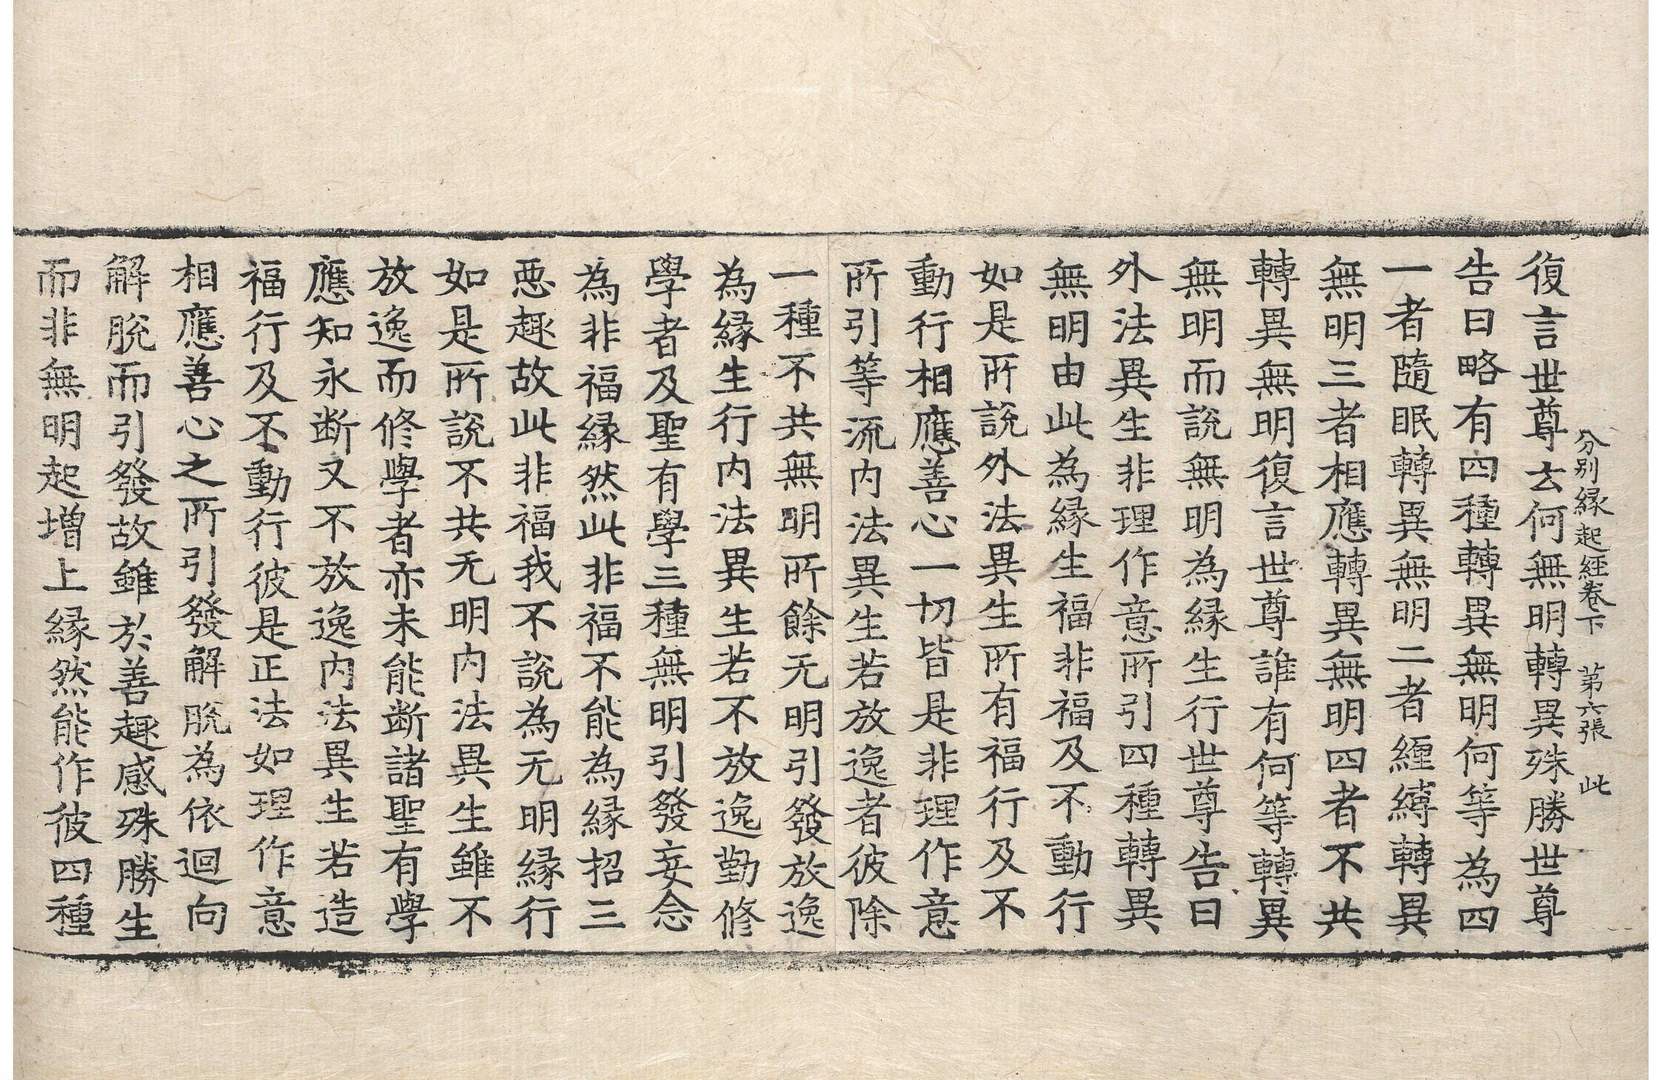 分别緣起經卷下　第六張　此
復言世尊云何無明轉異殊勝世尊
告曰略有四種轉異無明何等為四
一者隨眠轉異無明二者纏縛轉異
無明三者相應轉異無明四者不共
轉異無明復言世尊誰有何等轉異
無明而說無明為緣生行世尊告曰
外法異生非理作意所引四種轉異
無明由此為緣生福非福及不動行
如是所說外法異生所有福行及不
動行相應善心一切皆是非理作意
所引等流内法異生若放逸者彼除
一種不共無明所餘无明引發放逸
為緣生行内法異生若不放逸勤修
學者及聖有學三種無明引發妄念
為非福緣然此非福不能為緣招三
惡趣故此非福我不說為无明緣行
如是所說不共无明内法異生雖不
放逸而修學者亦未能断諸聖有學
應知永断又不放逸内法異生若造
福行及不動行彼是正法如理作意
相應善心之所引發解脫為依迴向
解脫而引發故雖於善趣感殊勝生
而非無明起增上緣然能作彼四種